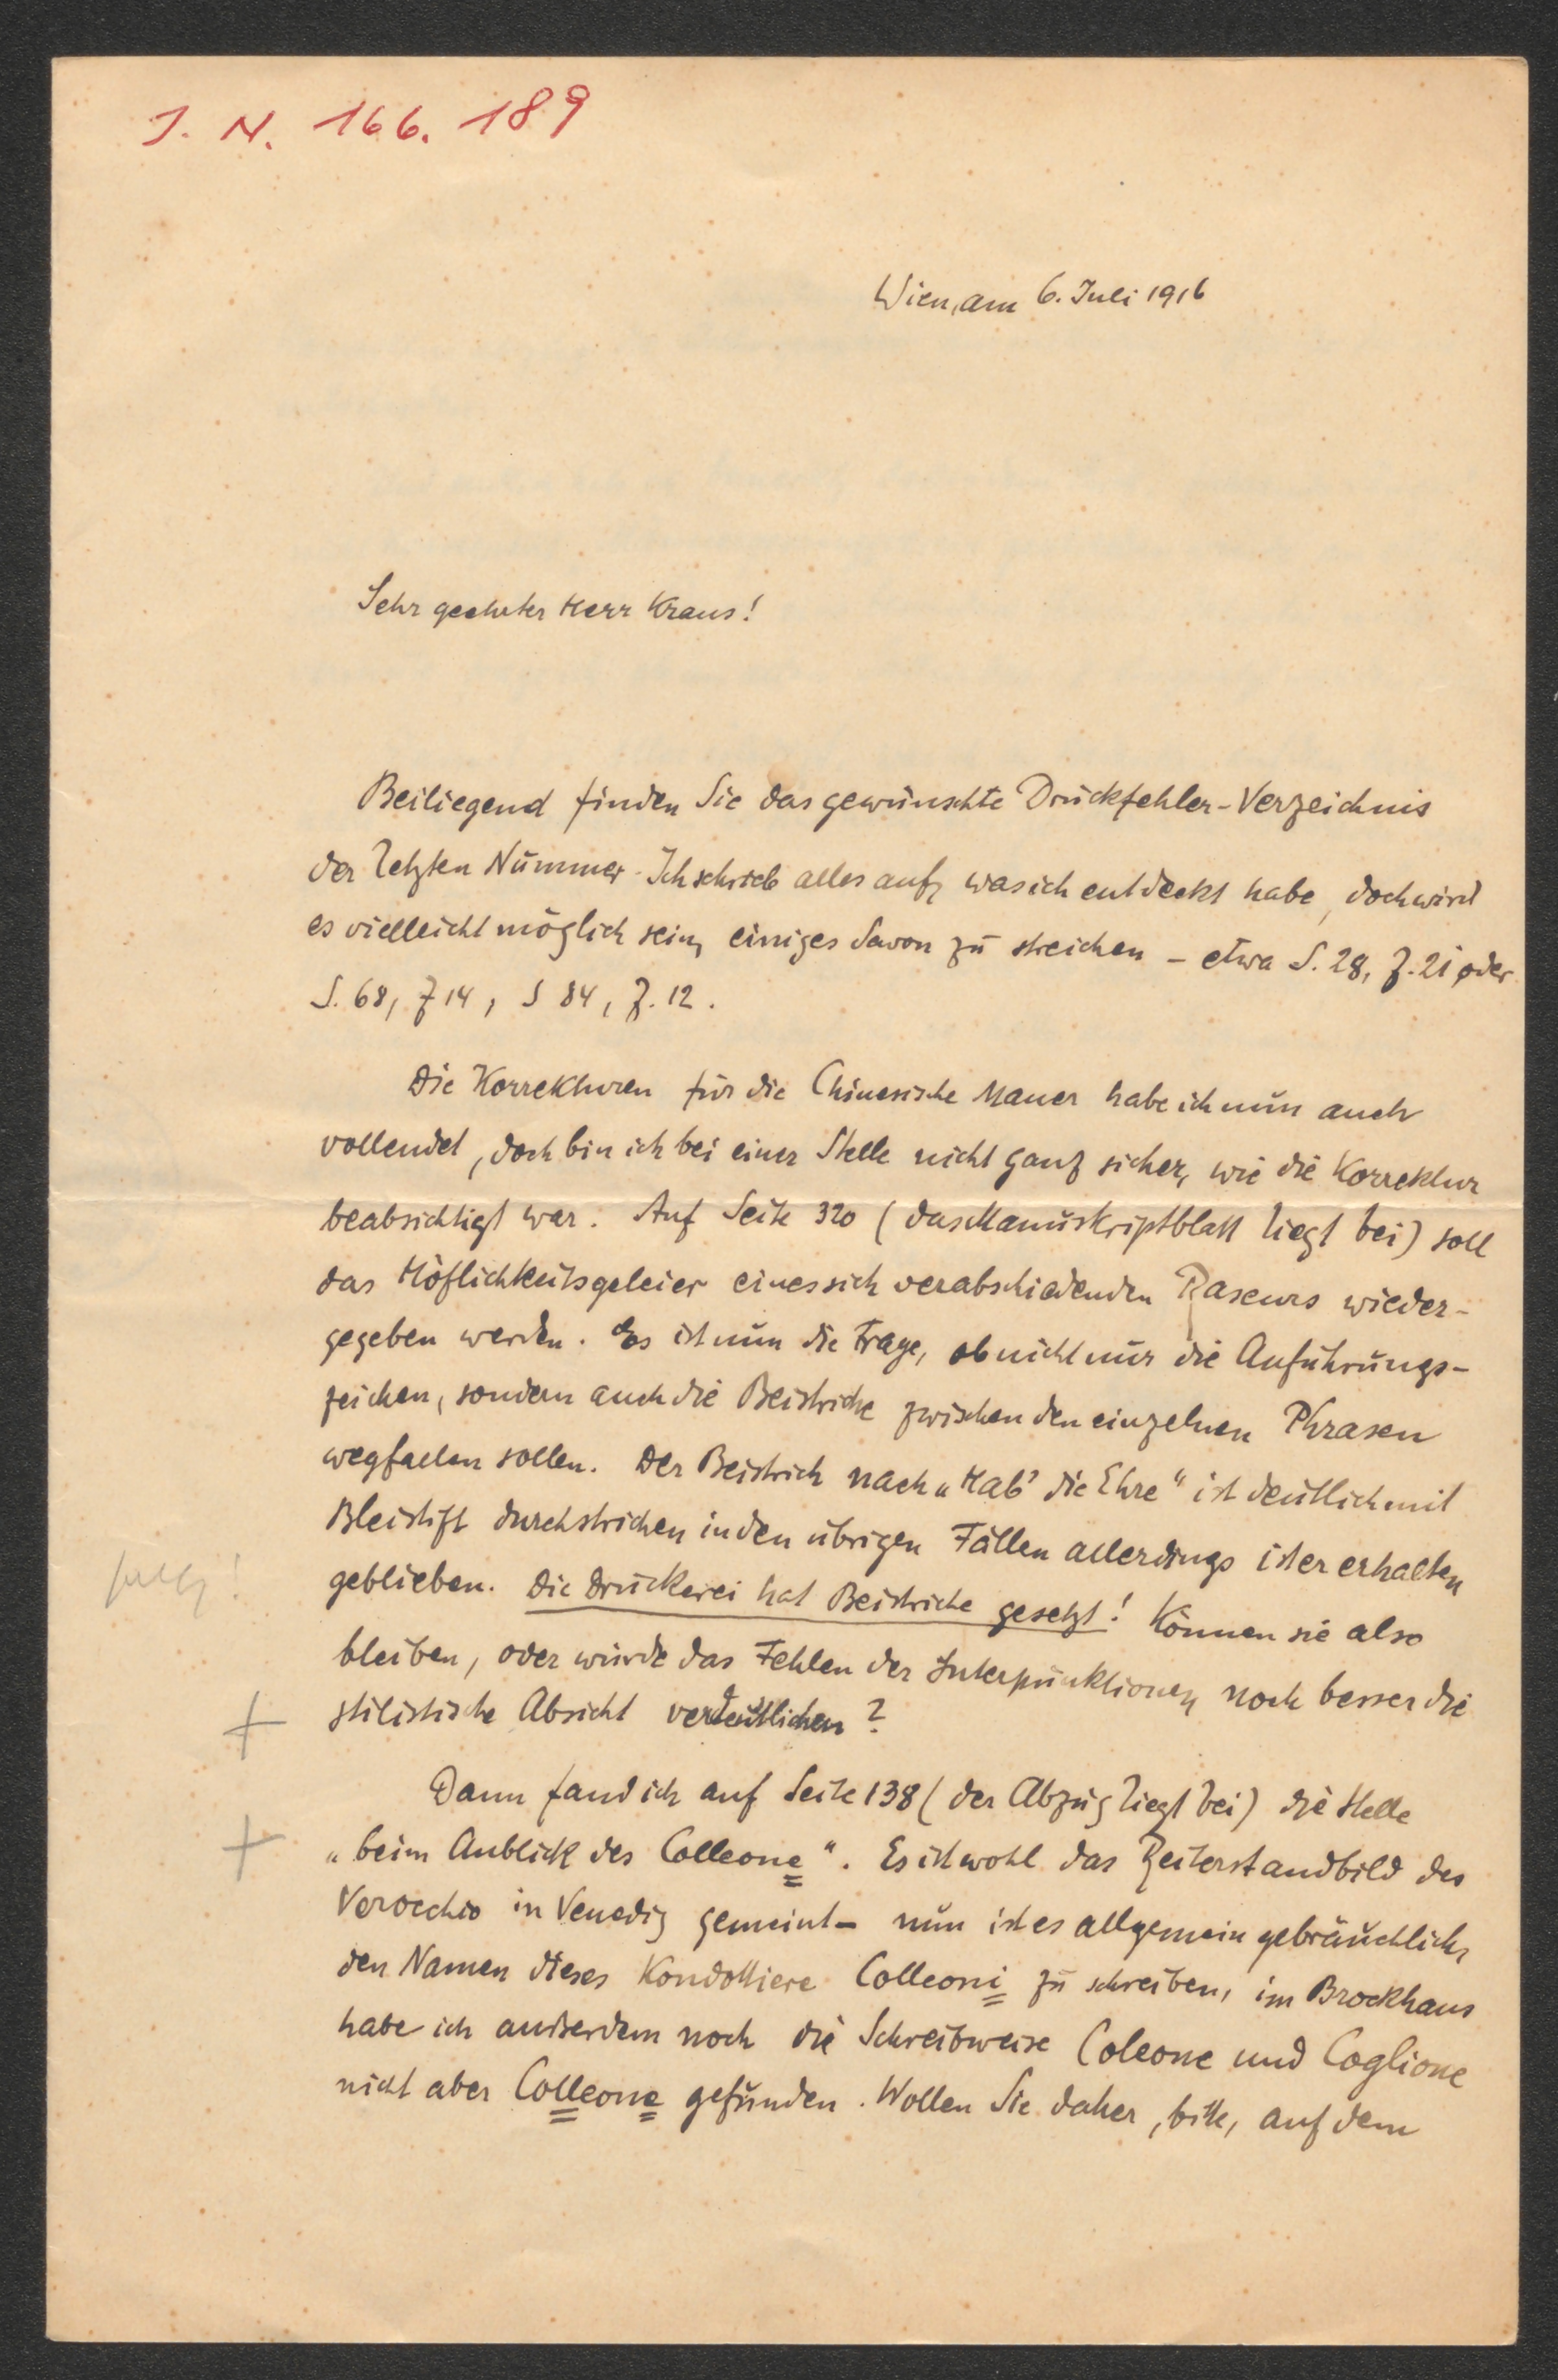 J. N. 166.189
Wien, am 6. Juli 1916
Sehr geehrter Herr Kraus!
Beiliegend finden Sie das gewünschte Druckfehler-Verzeichnis
der letzten Nummer. Ich schrieb alles auf, was ich entdeckt habe, doch wird
es vielleicht möglich sein, einiges davon zu streichen – etwa S. 28, Z. 21 oder
S. 68, Z 14, S 84, Z. 12.
Die Korrekturen für die Chinesische Mauer habe ich nun auch
vollendet, doch bin ich bei einer Stelle nicht ganz sicher, wie die Korrektur
beabsichtigt war. Auf Seite 320 (das Manuskriptblatt liegt bei) soll
das Höflichkeitsgeleier eines sich verabschiedenden Raseurs wieder-
gegeben werden. Es ist nun die Frage, ob nicht nur die Anführungs-
zeichen, sondern auch die Beistriche zwischen den einzelnen Phrasen
wegfallen sollen. Der Beistrich nach „Hab' die Ehre“ ist deutlich mit
Bleistift durchstrichen in den übrigen Fällen allerdings ist er erhalten
geblieben. Die Druckerei hat Beistriche gesetzt! Können sie also
bleiben, oder würde das Fehlen der Interpunktionen noch besser die
+ stilistische Absicht verdeutlichen?
Dann fand ich auf Seite 138 (der Abzug liegt bei) die Stelle
+ „beim Anblick des Colleone“. Es ist wohl das Reiterstandbild des
Verocchio in Venedig gemeint – nun ist es allgemein gebräuchlich,
den Namen dieses Kondottiere Colleoni zu schreiben, im Brockhaus
habe ich außerdem noch die Schreibweise Coleone und Coglione
nicht aber Colleone gefunden. Wollen Sie daher, bitte, auf dem